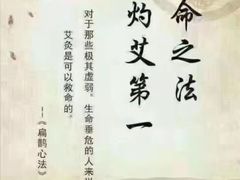 命之法
灼艾第一
对于那些极其虚弱。生命垂危的人来说
艾灸是可以救命的。
--《扁鹊心法》